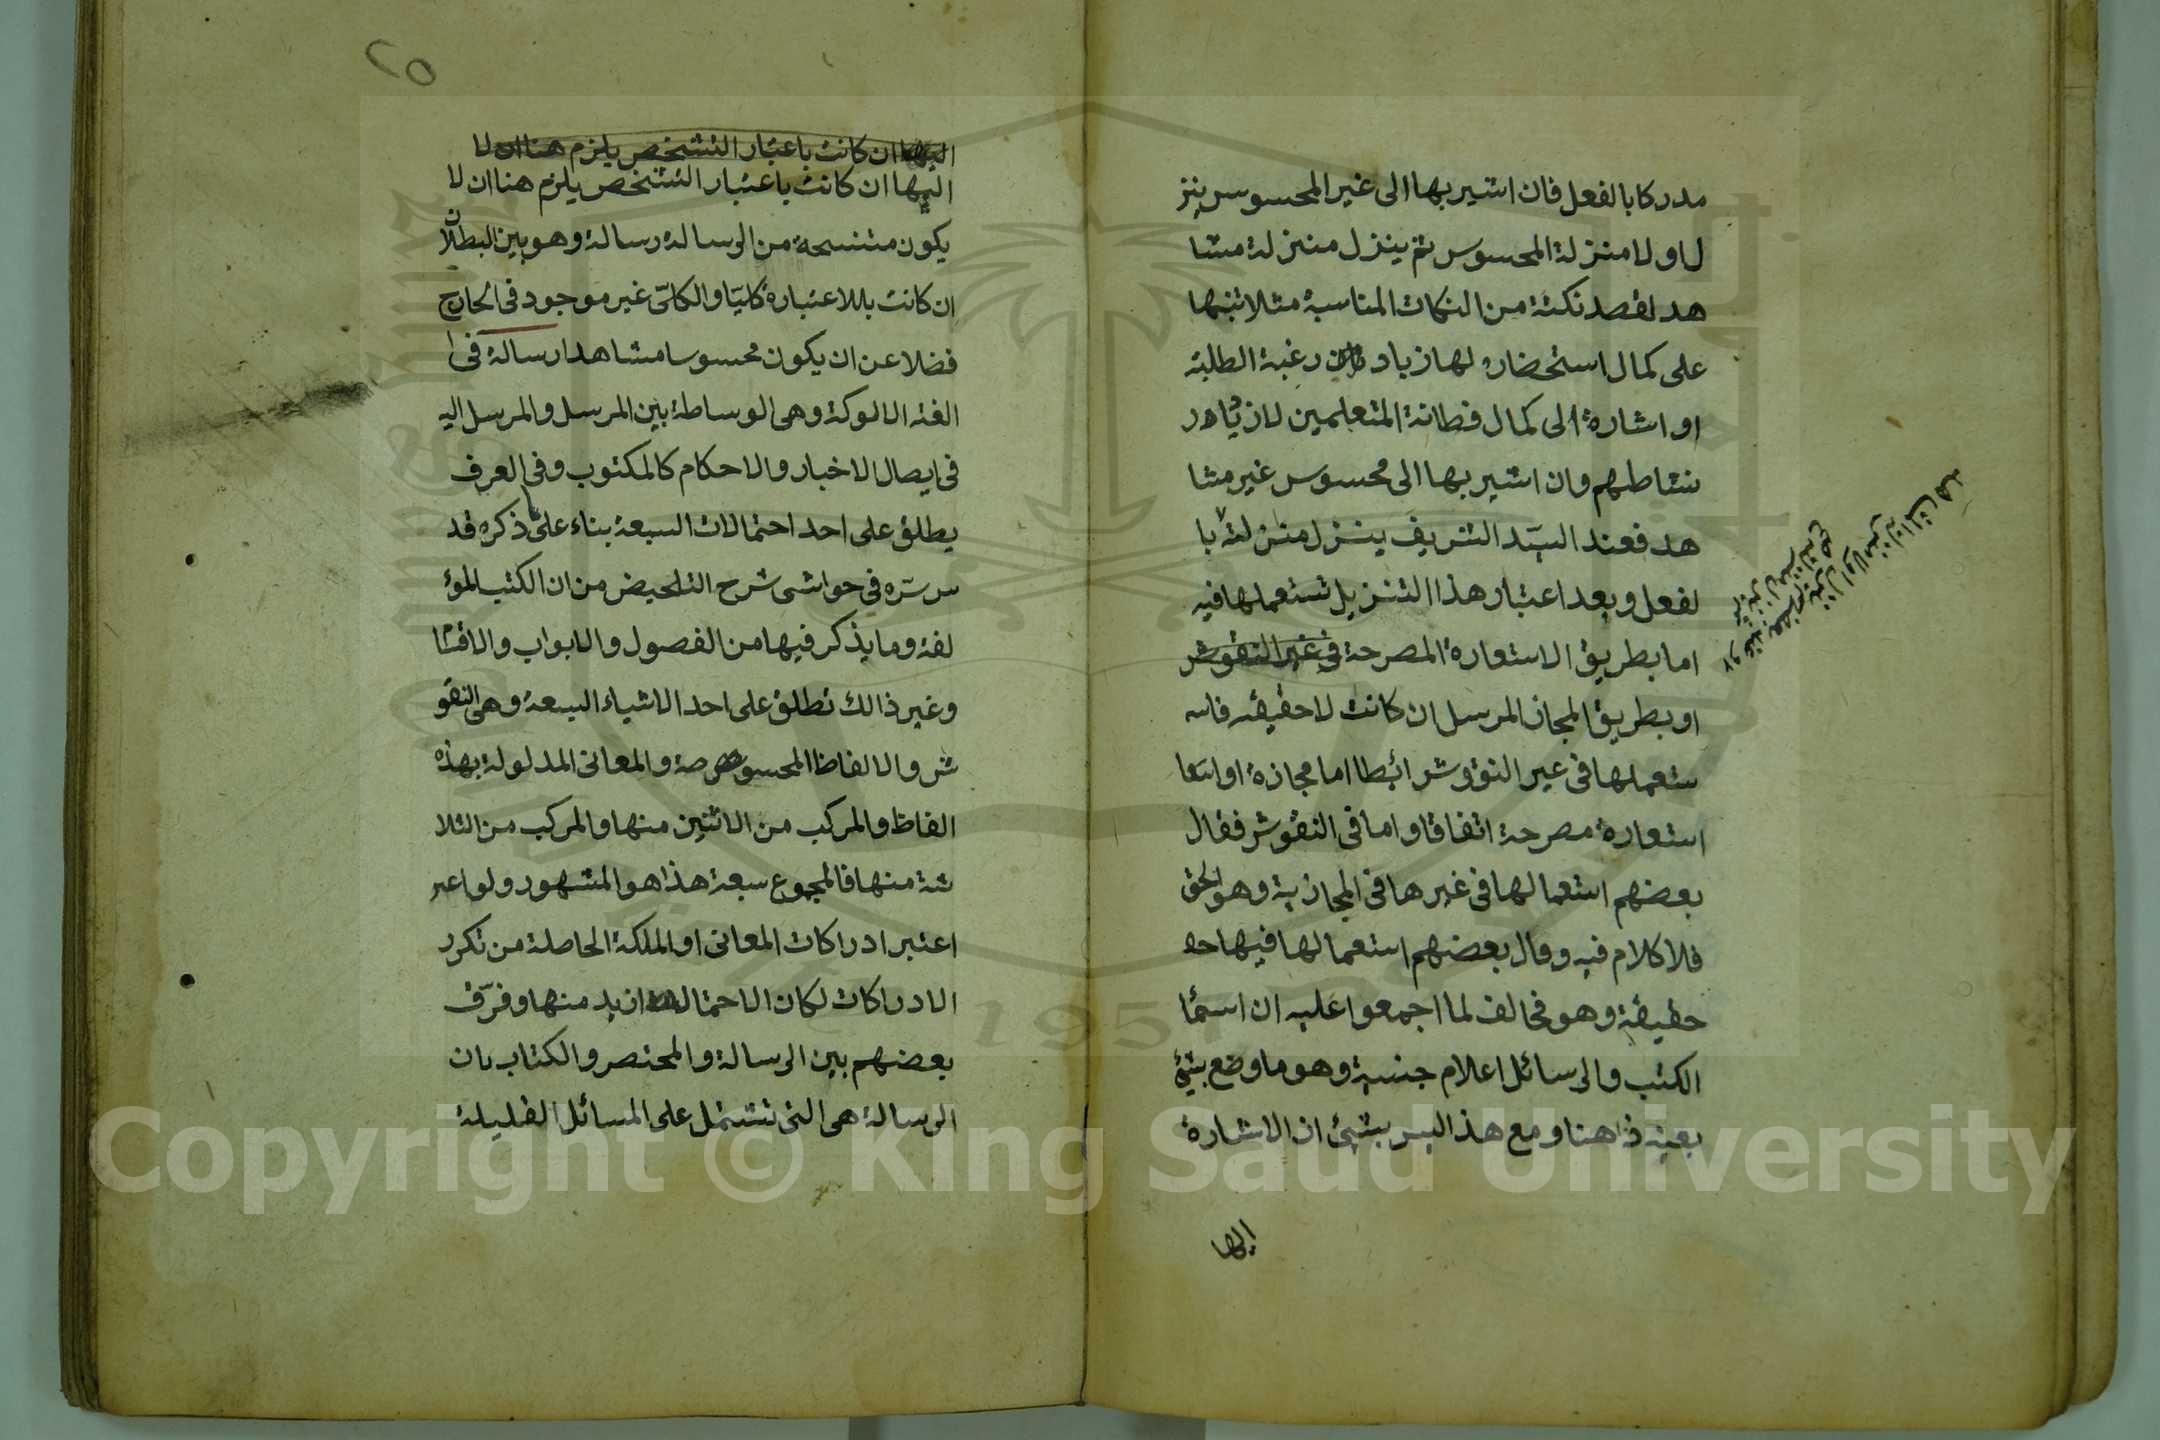 مدركا بالفعل فان اشير بها الى غير المحسوس ينز
ل اولا منزلة المحسوس ثم ينزل منزلة مشا
هد لقصد نكتة من النكات المناسبة مثلا تنبها
على كمال استحضاره لها زياد رغبة الطلبة
او اشارة الى كمال فطانة المتعلمين لازياد
نشاطهم وان اشير بها الى محسوس غير مشا
هد فعند السيد الشريف ينزل منزلته با
لفعل وبعد اعتبار هذا التنزيل تستعملها فيه
اما بطريق الاستعارة المصرحة في غير النقوش
او بطريق المجاز المرسل ان كانت لا حقيقة فاسه
ستعملها في غير النقوش ايطا اما مجازة او استعا
استعارة مصرحة اتفاقا واما في النقوش فقال
بعضهم استعمالها في غيرها في المجازية وهو الحق
فلا كلام فيه وقال بعضهم استعمالها فيها حد
حقيقة وهو مخالف لما اجمعوا عليه ان اسمئا
الكتب والرسائل اعلام جنسية وهو ما وضع بشئ
بعينه ذهنا ومع هذا ليس بشئ ان الاشارة
اليها
وعند بعضهم ينزل اولا منزلة المشاهد
٢٥
اليها ان كانت باعتبار التشخص يلزم هنا ان لا
اليها ان كانت باعتبار التشخص يلزم هنا ان لا
يكون متنسحة من الرسالة رسالة وهو بين البطلان
ان كانت بللاعتبارة كليا والكلى غير موجود في الخارج
فضلا عن ان يكون محسوسا مشاهدا رسالة في ا
الغة الالوكة وهى الوساطة بين المرسل والمرسل اليه
في ايصال الاخبار والاحكام كالمكتوب وفي العرف
يطلق على احد احتمالات السبعة بناء على ما ذكره قد
س سره في حواشى شرح التلحيض من ان الكتب المؤ
لفة وما يذكر فيها من الفصول والابواب والاقشا
وغير ذالك تطلق على احد الاشياء السبعة وهى النقو
ش والالفاظ المحسوصة والمعانى المدلولة بهذه
الفاظ والمركب من الاثنين منها والمركب من الثلا
ثة منها فالمجموع سبعة هذا هو المشهور ولو اعبر
اعتبر ادراكات المعانى او الملكة الحاصلة من تكرر
الادراكات لكان الاحتمال ازيد منها وفرق
بعضهم بين الرسالة والمختصر والكتاب بان
الرسالة هى التى تشتمل على المسائل القليلة
Copyright © King Saud University
1957